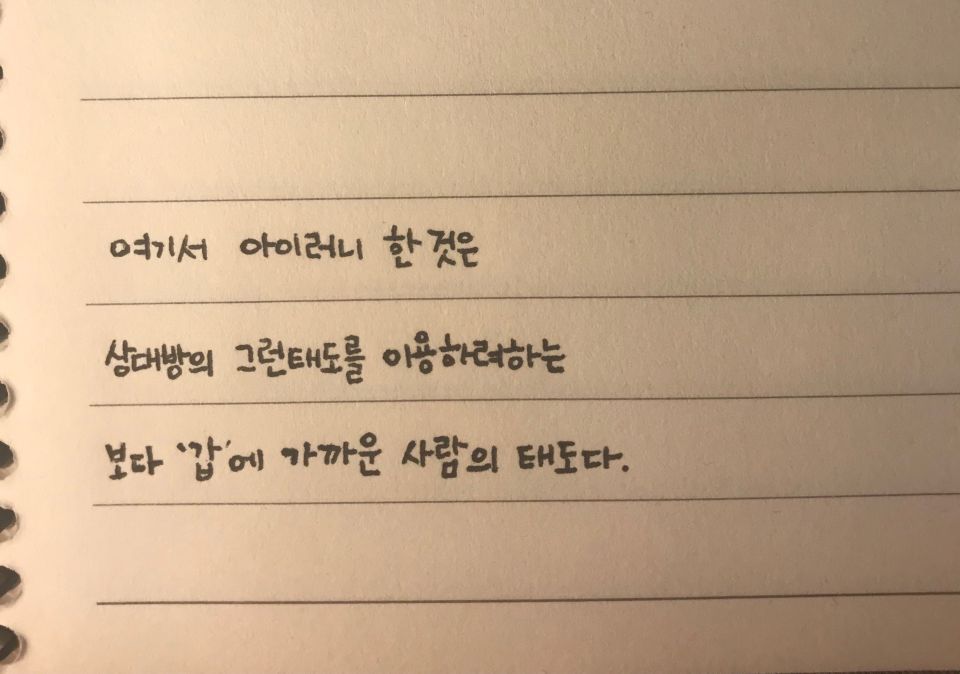 여기서 아이러니 한 것은
상대방의 그런태도를 이용하려하는
보다 '갑'에 가까운 사람의 태도다.